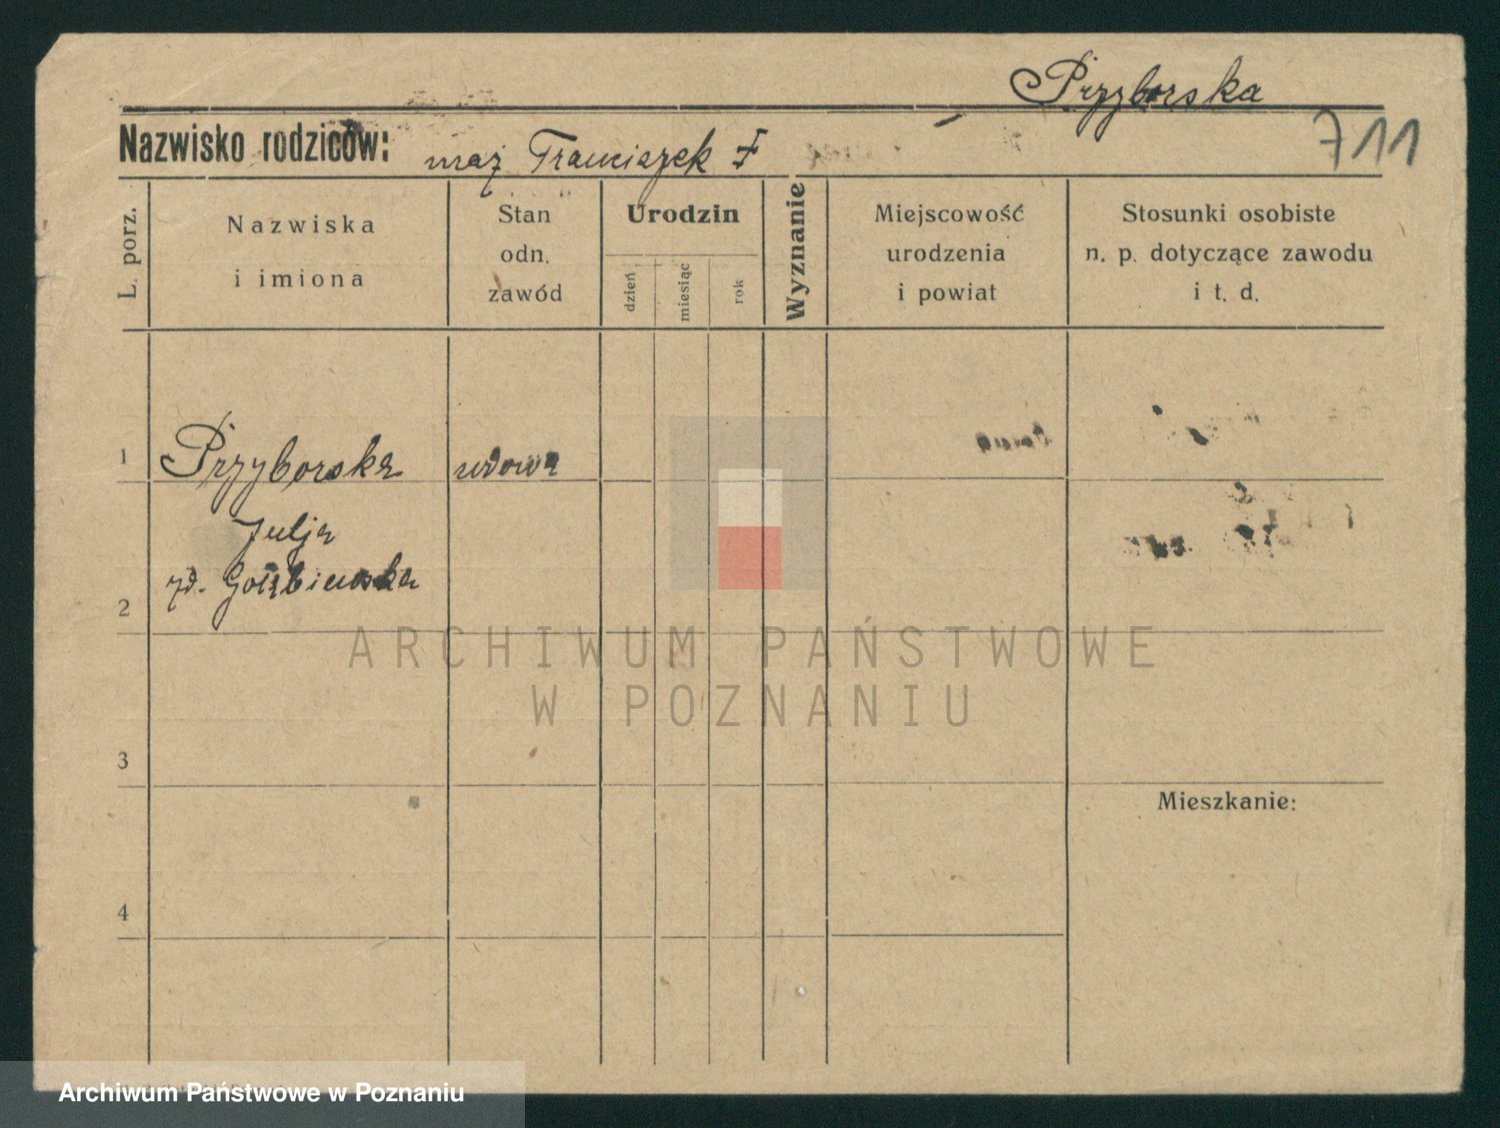 Przyborska
Nazwisko rodziców: mąż Franciszek Ŧ
711
L. porz.
Nazwiska
i imiona
Stan
odn.
zawód
Urodzin
dzień
miesiąc
rok
Wyznanie
Miejscowość
urodzenia
i powiat
Stosunki osobiste
n. p. dotyczące zawodu
i t. d.
1
Przyborska
wdowa
Julja
zd. Gołębiewska
2
ARCHIWUM PAŃSTWOWE
W POZNANIU
3
Mieszkanie:
4
Archiwum Państwowe w Poznaniu